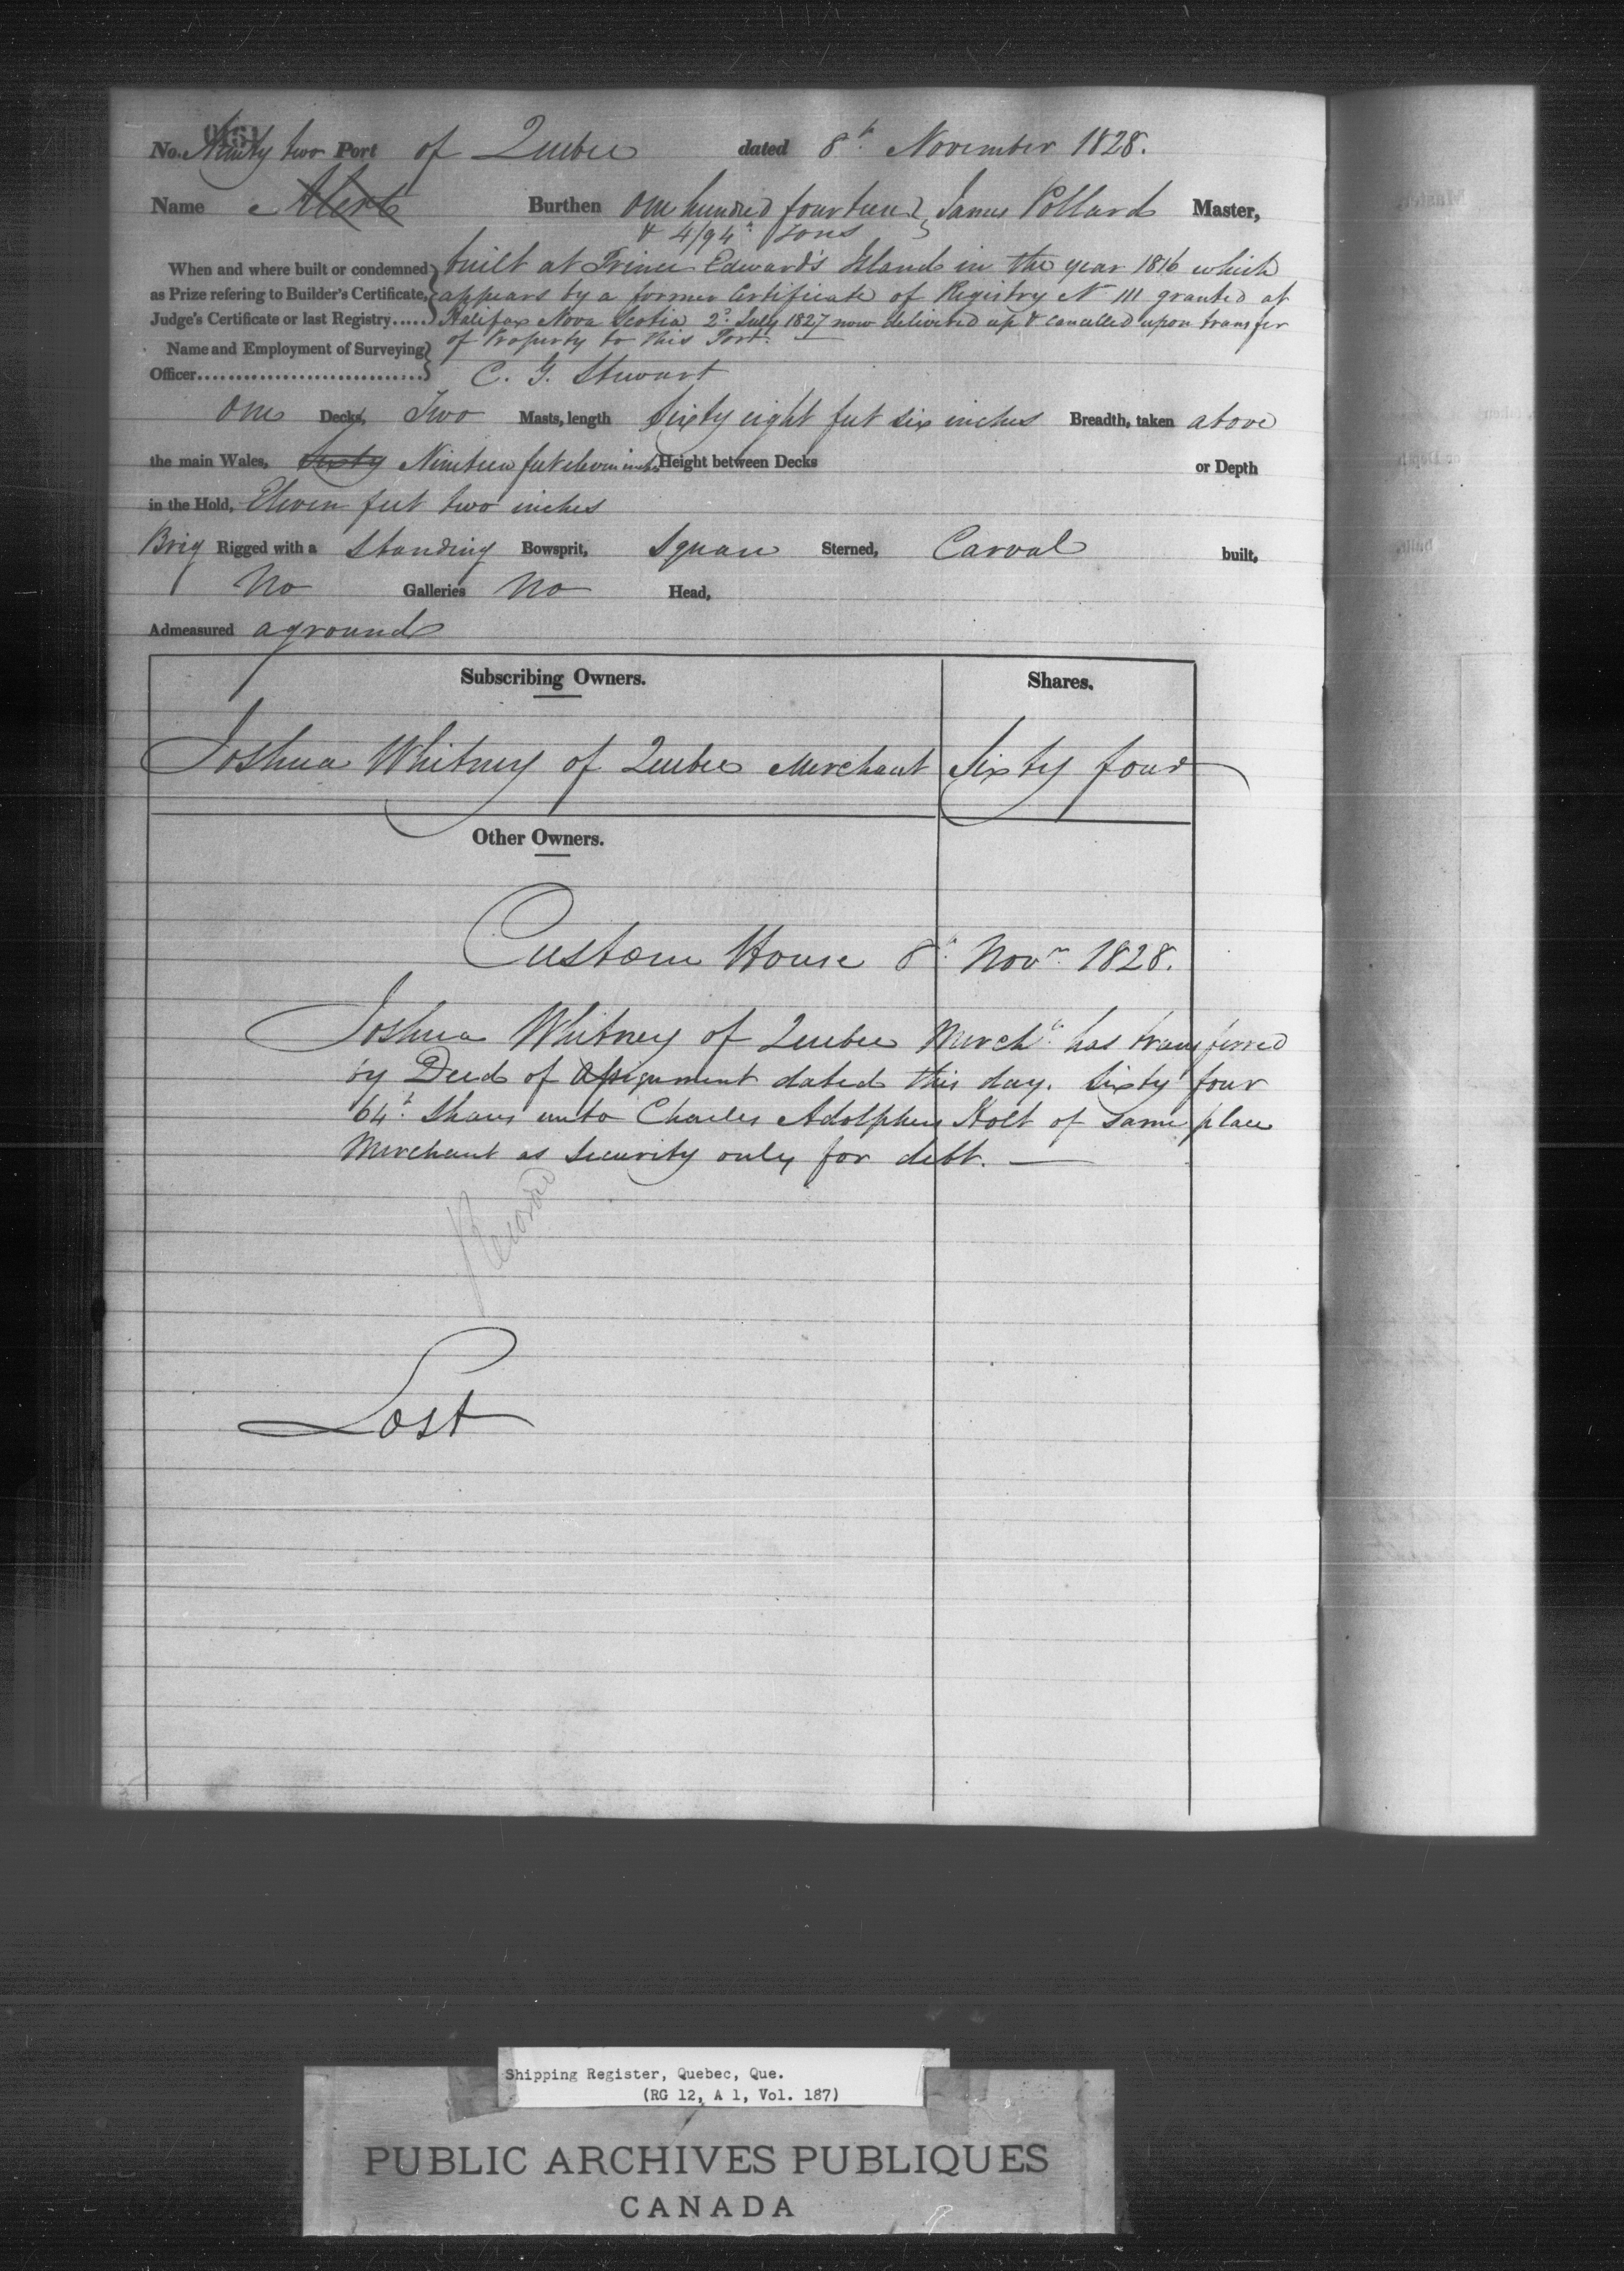 No. Ninety two Port of Quebec dated 8th November 1828.
Name Alert Burthen One hundred fourteen & 4/94th Tons } James Pollard Master,
When and where built or condemned as Prize refering to Builder's Certificate, Judge's Certificate or last Registry..... } built at Prince Edward's Island in the year 1816 which
appears by a former Certificate of Registry No 111 granted at
Halifax Nova Scotia 2d. July 1827 now delivered up & cancelled upon transfer
of Property to this Port. —
Name and Employment of Surveying Officer.............................. } C. G. Stewart
One Decks, Two Masts, length Sixty eight feet six inches Breadth, taken above
the main Wales, Sixty Nineteen feet eleven inches Height between Decks or Depth
in the Hold, Eleven feet two inches
Brig Rigged with a Standing Bowsprit, Square Sterned, Carval built,
No Galleries No Head,
Admeasured aground
Subscribing Owners. Shares.
Joshua Whitney of Quebec Merchant Sixty four
Other Owners.
Custom House 8th. Novr. 1828.
Joshua Whitney of Quebec Mercht. has transferred
by Deed of Assignment dated this day. Sixty four
64th. Shares unto Charles Adolphus Holt of same place
Merchant as Security only for debt. —
Lost
Shipping Register, Quebec, Que.
(RG 12, A 1, Vol. 187)
PUBLIC ARCHIVES PUBLIQUES
CANADA